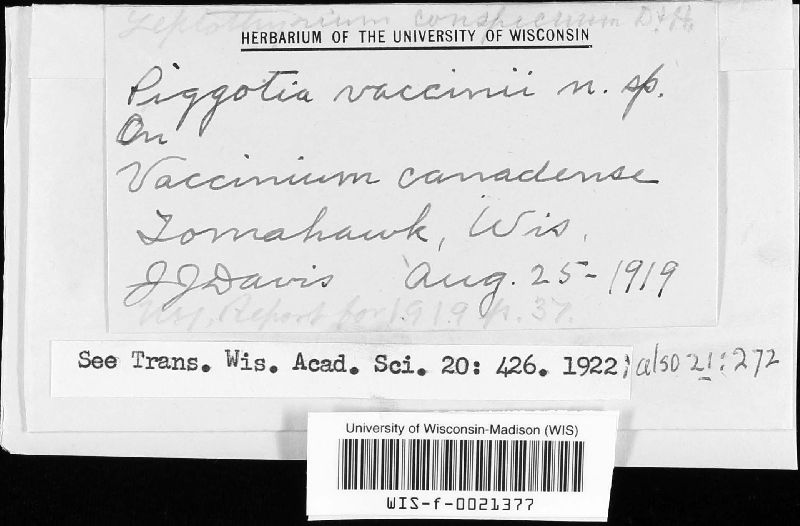 Leptothyrium conspicuum D. & H.
HERBARIUM OF THE UNIVERSITY OF WISCONSIN
Piggotia vaccinii n. sp.
On
Vaccinium canadense
Tomahawk, Wis.
J J Davis Aug. 25-1919
Report for 1919 p. 37.
See Trans. Wis. Acad. Sci. 20: 426. 1922; also 21:272
University of Wisconsin-Madison (WIS)
WIS-f-0021377